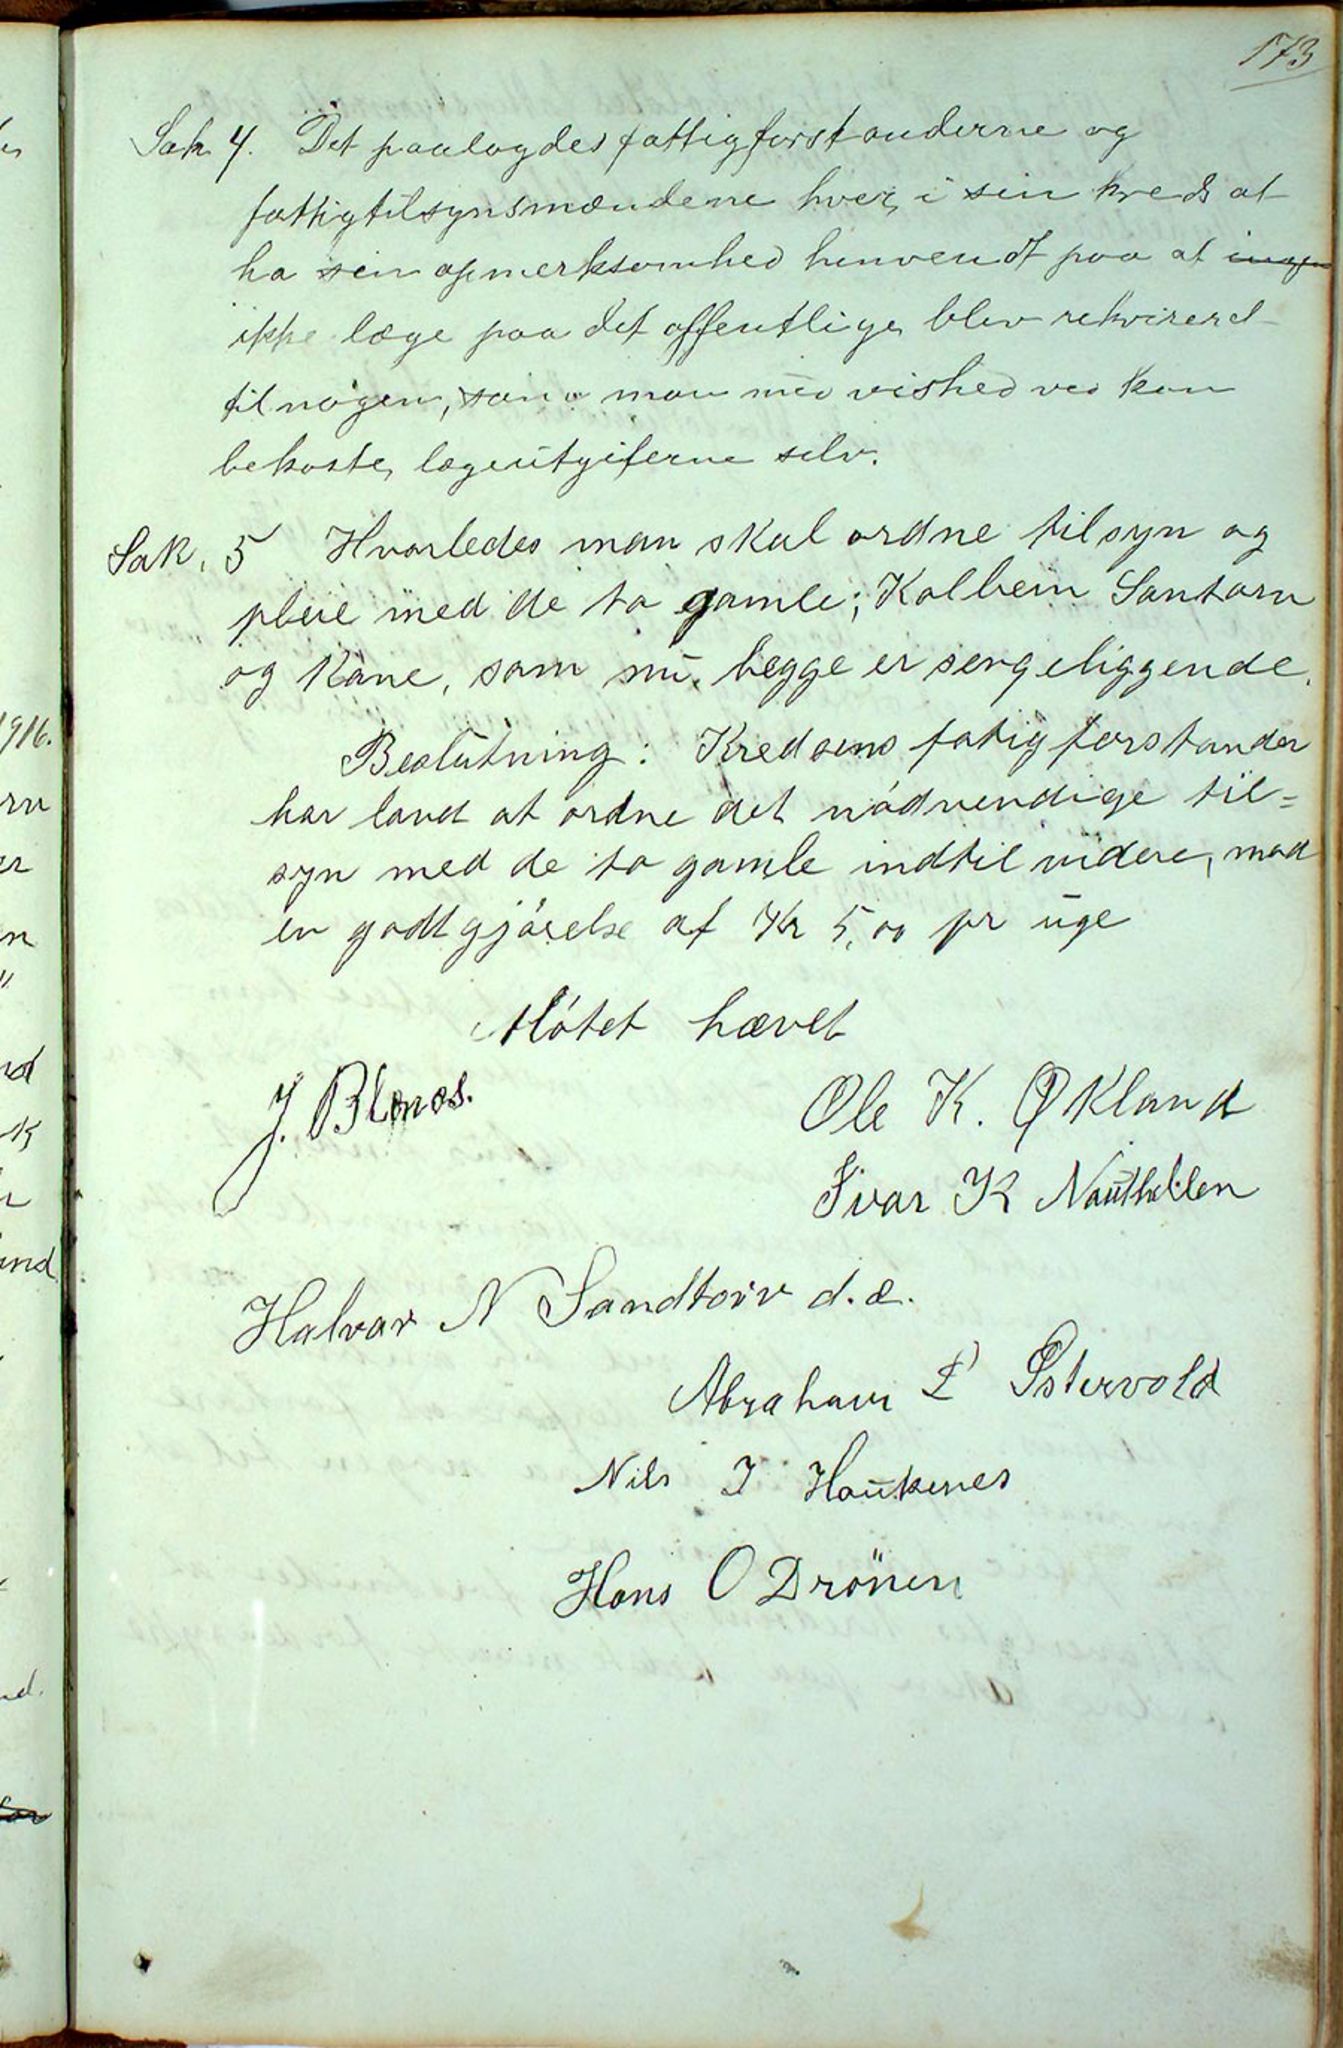 173
Sak 4. Det paalagdes fattigforstanderne og
fattigtilsynsmændene hver, i sin kreds at
ha sin opmerksomhed henvendt paa at ingen
ikke læge paa det offentlige, blev rekvireret
til nogen, som man med vished ved kan
bekoste, lægeutgiferne selv.
Sak. 5 Hvorledes man skal ordne tilsyn og
pleie med de to gamle; Kolbein Santorv
og Kone, som nu, begge er sengeliggende.
Beslutning: Kredsens fatigforstander
har lovet at ordne det nódvendige til=
syn med de to gamle indtil videre, mod
en godtgjörelse af Kr 5,00 pr uge
Mótet hævet
J. Blenes.
Ole K. Økland
Ivar K Nauthellen
Halvar N Sandtorv d.e.
Abraham L Østervold
Nils J Haukenes
Hans O Drönen
1916.